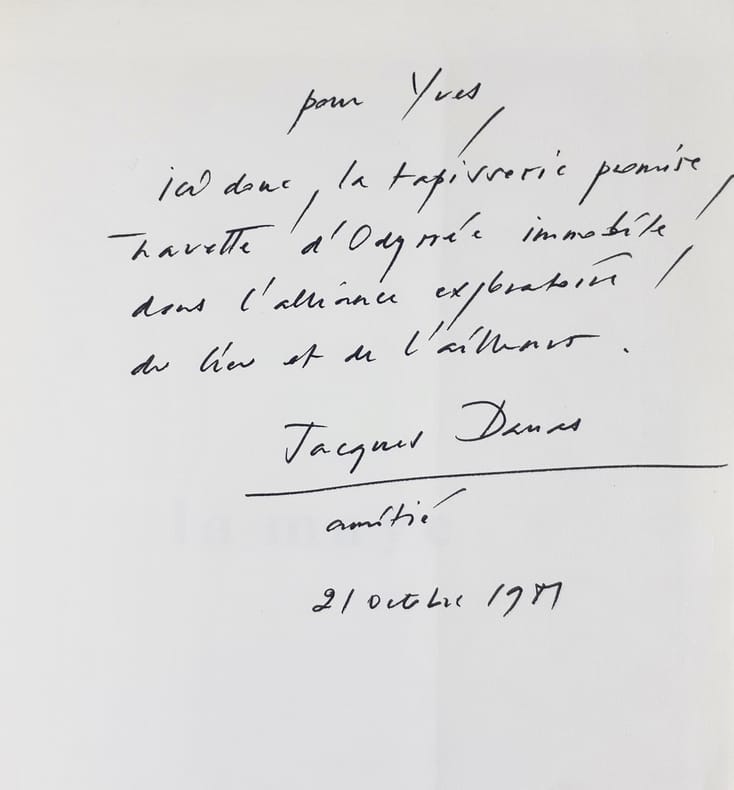 pour Yves,
ici donc, la tapisserie promise,
navette d'Odyssée immobile
dans l'alliance exploratoire
du lieu et de l'ailleurs.
Jacques Darras
amitié
21 octobre
la maye